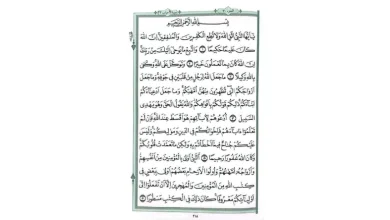 بِسْمِ اللَّهِ الرَّحْمَٰنِ الرَّحِيمِ
يَٰأَيُّهَا النَّبِيُّ اتَّقِ اللَّهَ وَلَا تُطِعِ الْكَٰفِرِينَ وَالْمُنَٰفِقِينَ إِنَّ اللَّهَ
كَانَ عَلِيمًا حَكِيمًا ١ وَاتَّبِعْ مَا يُوحَىٰ إِلَيْكَ مِن رَّبِّكَ
إِنَّ اللَّهَ كَانَ بِمَا تَعْمَلُونَ خَبِيرًا ٢ وَتَوَكَّلْ عَلَى اللَّهِ وَكَفَىٰ
بِاللَّهِ وَكِيلًا ٣ مَّا جَعَلَ اللَّهُ لِرَجُلٍ مِّن قَلْبَيْنِ فِي جَوْفِهِ وَمَا جَعَلَ
أَزْوَٰجَكُمُ الَّٰـِٔي تُظَٰهِرُونَ مِنْهُنَّ أُمَّهَٰتِكُمْ وَمَا جَعَلَ أَدْعِيَاءَكُمْ
أَبْنَاءَكُمْ ذَٰلِكُمْ قَوْلُكُم بِأَفْوَٰهِكُمْ وَاللَّهُ يَقُولُ الْحَقَّ وَهُوَ يَهْدِي
السَّبِيلَ ٤ ادْعُوهُمْ لِءَابَائِهِمْ هُوَ أَقْسَطُ عِندَ اللَّهِ فَإِن لَّمْ
تَعْلَمُوا ءَابَاءَهُمْ فَإِخْوَٰنُكُمْ فِي الدِّينِ وَمَوَٰلِيكُمْ وَلَيْسَ
عَلَيْكُمْ جُنَاحٌ فِيمَا أَخْطَأْتُم بِهِ وَلَٰكِن مَّا تَعَمَّدَتْ قُلُوبُكُمْ
وَكَانَ اللَّهُ غَفُورًا رَّحِيمًا ٥ النَّبِيُّ أَوْلَىٰ بِالْمُؤْمِنِينَ مِنْ أَنفُسِهِمْ
وَأَزْوَٰجُهُ أُمَّهَٰتُهُمْ وَأُولُوا الْأَرْحَامِ بَعْضُهُمْ أَوْلَىٰ بِبَعْضٍ فِي
كِتَٰبِ اللَّهِ مِنَ الْمُؤْمِنِينَ وَالْمُهَٰجِرِينَ إِلَّا أَن تَفْعَلُوا إِلَىٰ
أَوْلِيَائِكُم مَّعْرُوفًا كَانَ ذَٰلِكَ فِي الْكِتَٰبِ مَسْطُورًا ٦
٤١٨